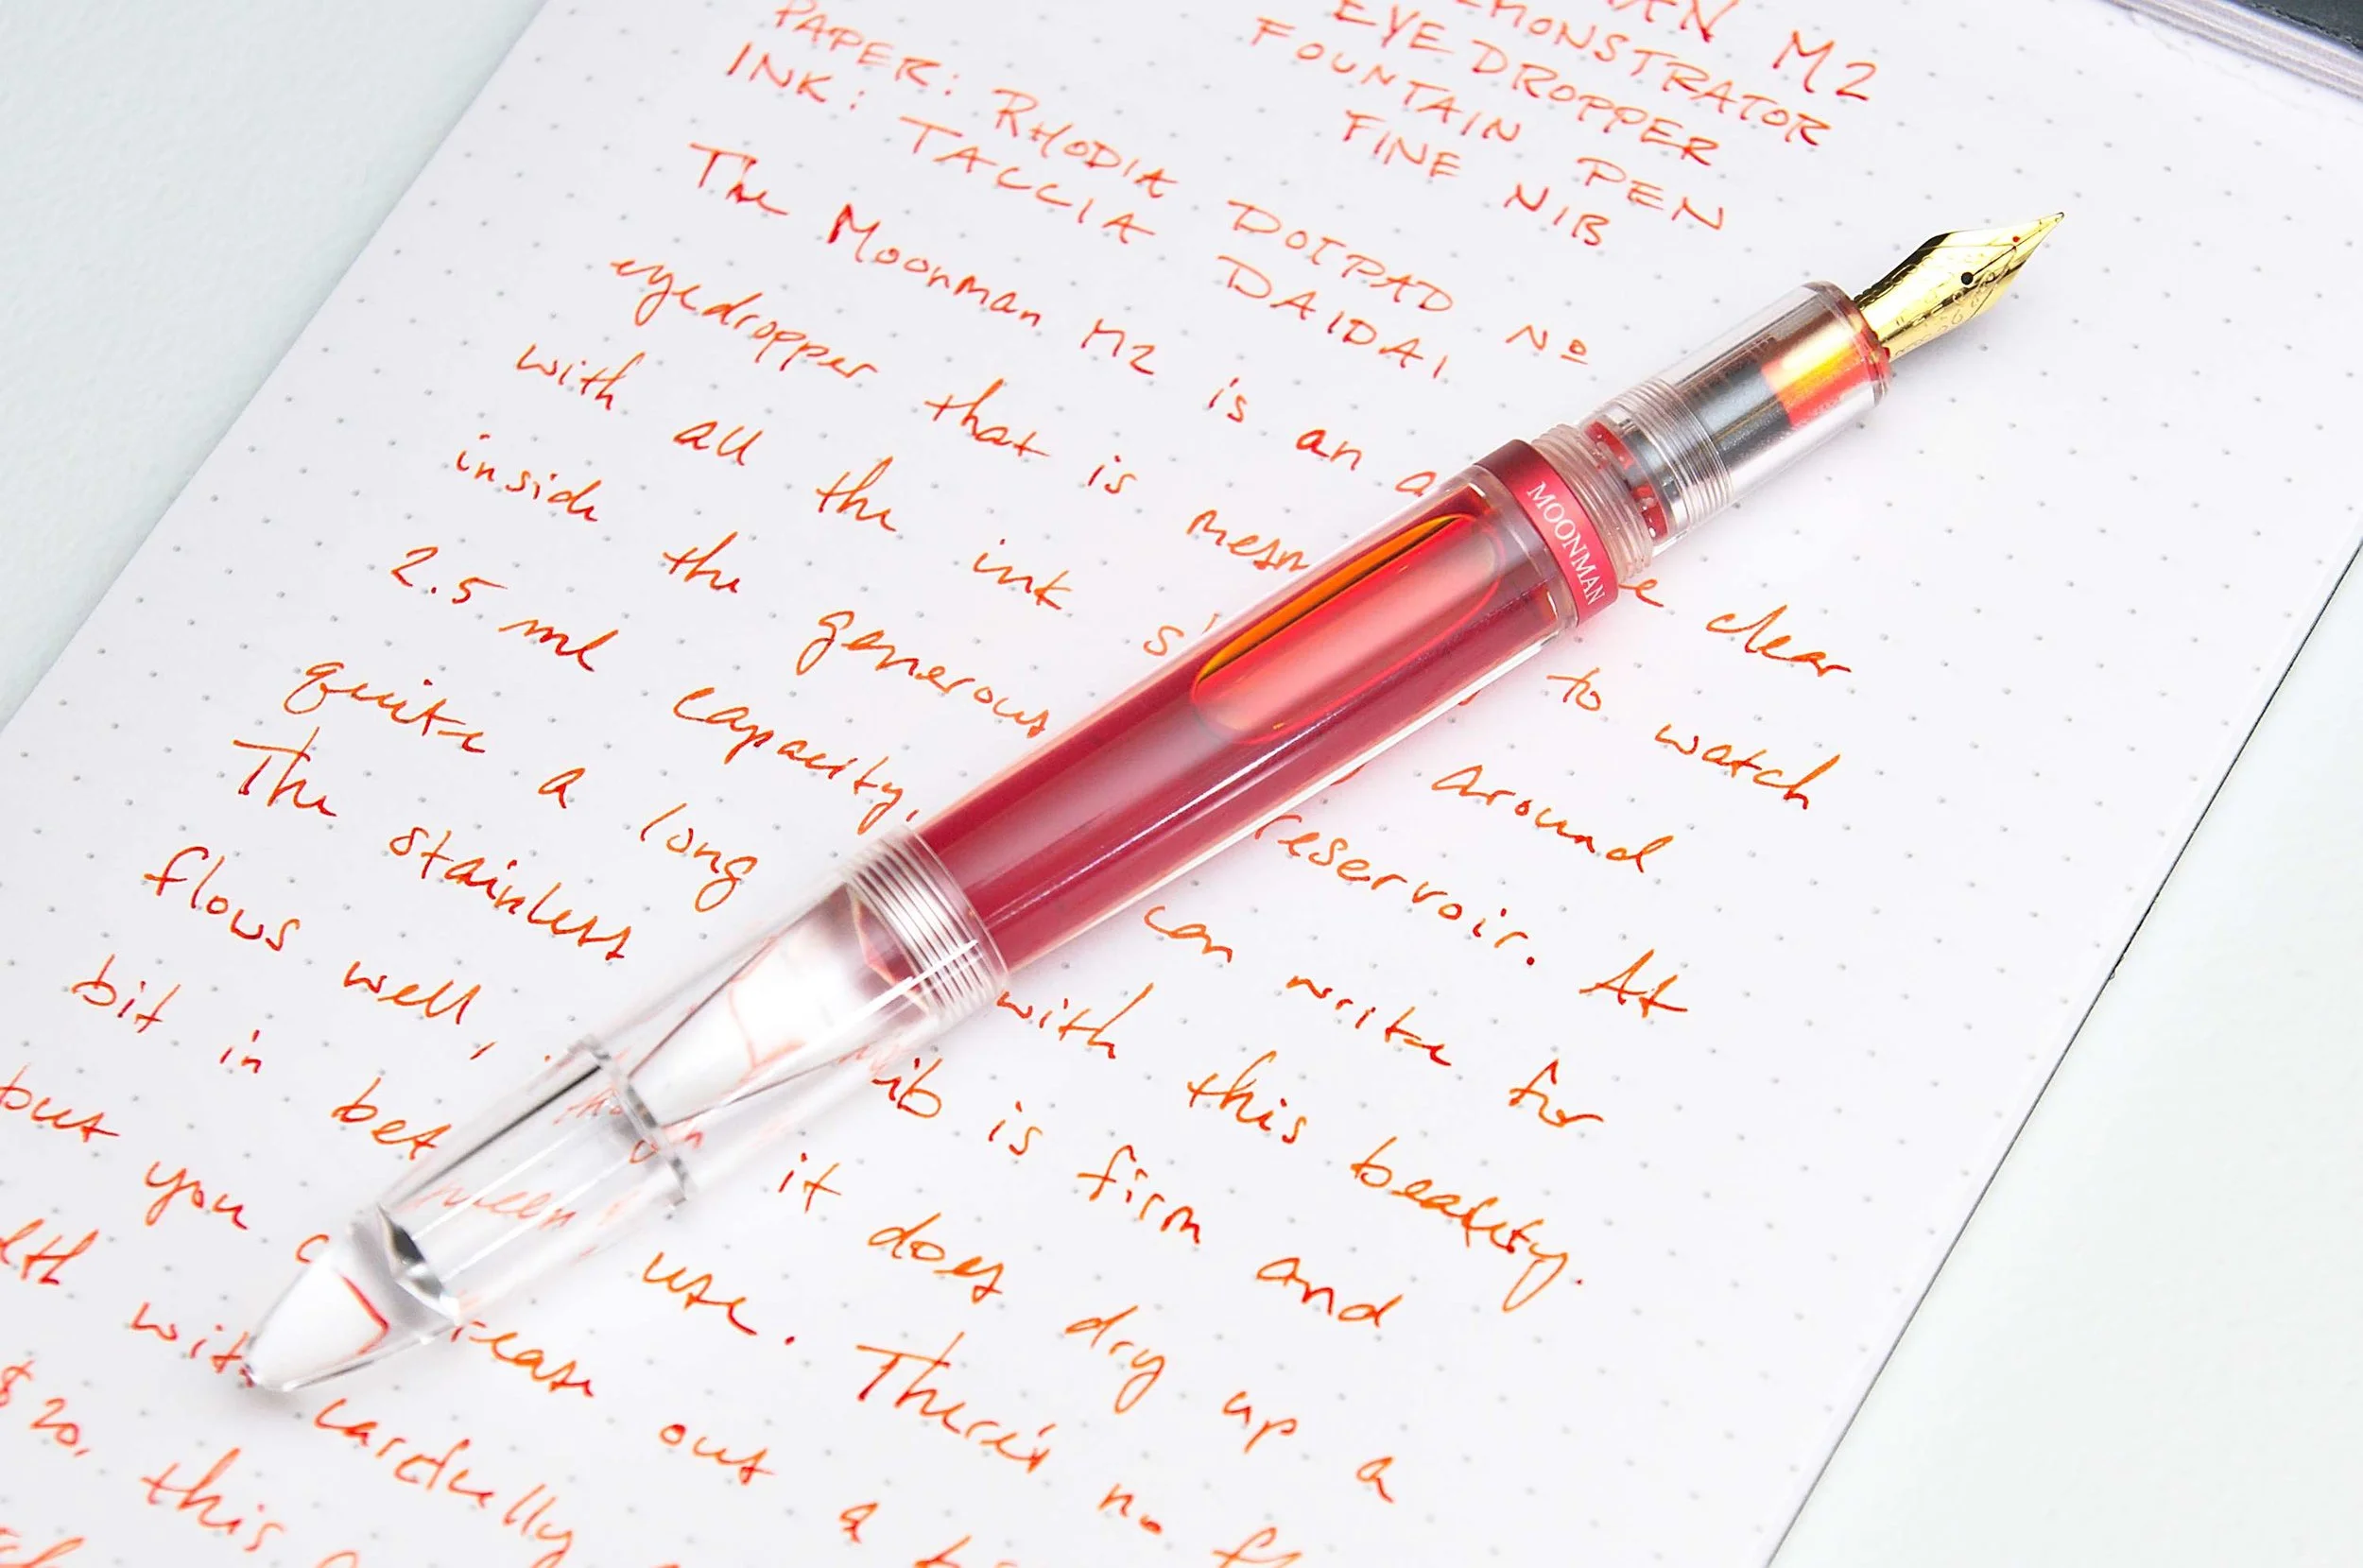 M2
DEMONSTRATOR
EYEDROPPER
FOUNTAIN PEN
FINE NIB
PAPER: RHODIA DOTPAD Nº
INK: TACCIA DAIDAI
The Moonman M2 is an a
eyedropper that is clear
with all the ink to watch
inside the generous around
2.5 ml capacity, reservoir. At
quite a long can write for
The stainless with this beauty.
flows well, nib is firm and
bit in between it does dry up a
but you use. There's no
with ease out a
$20, carefully
this
MOONMAN